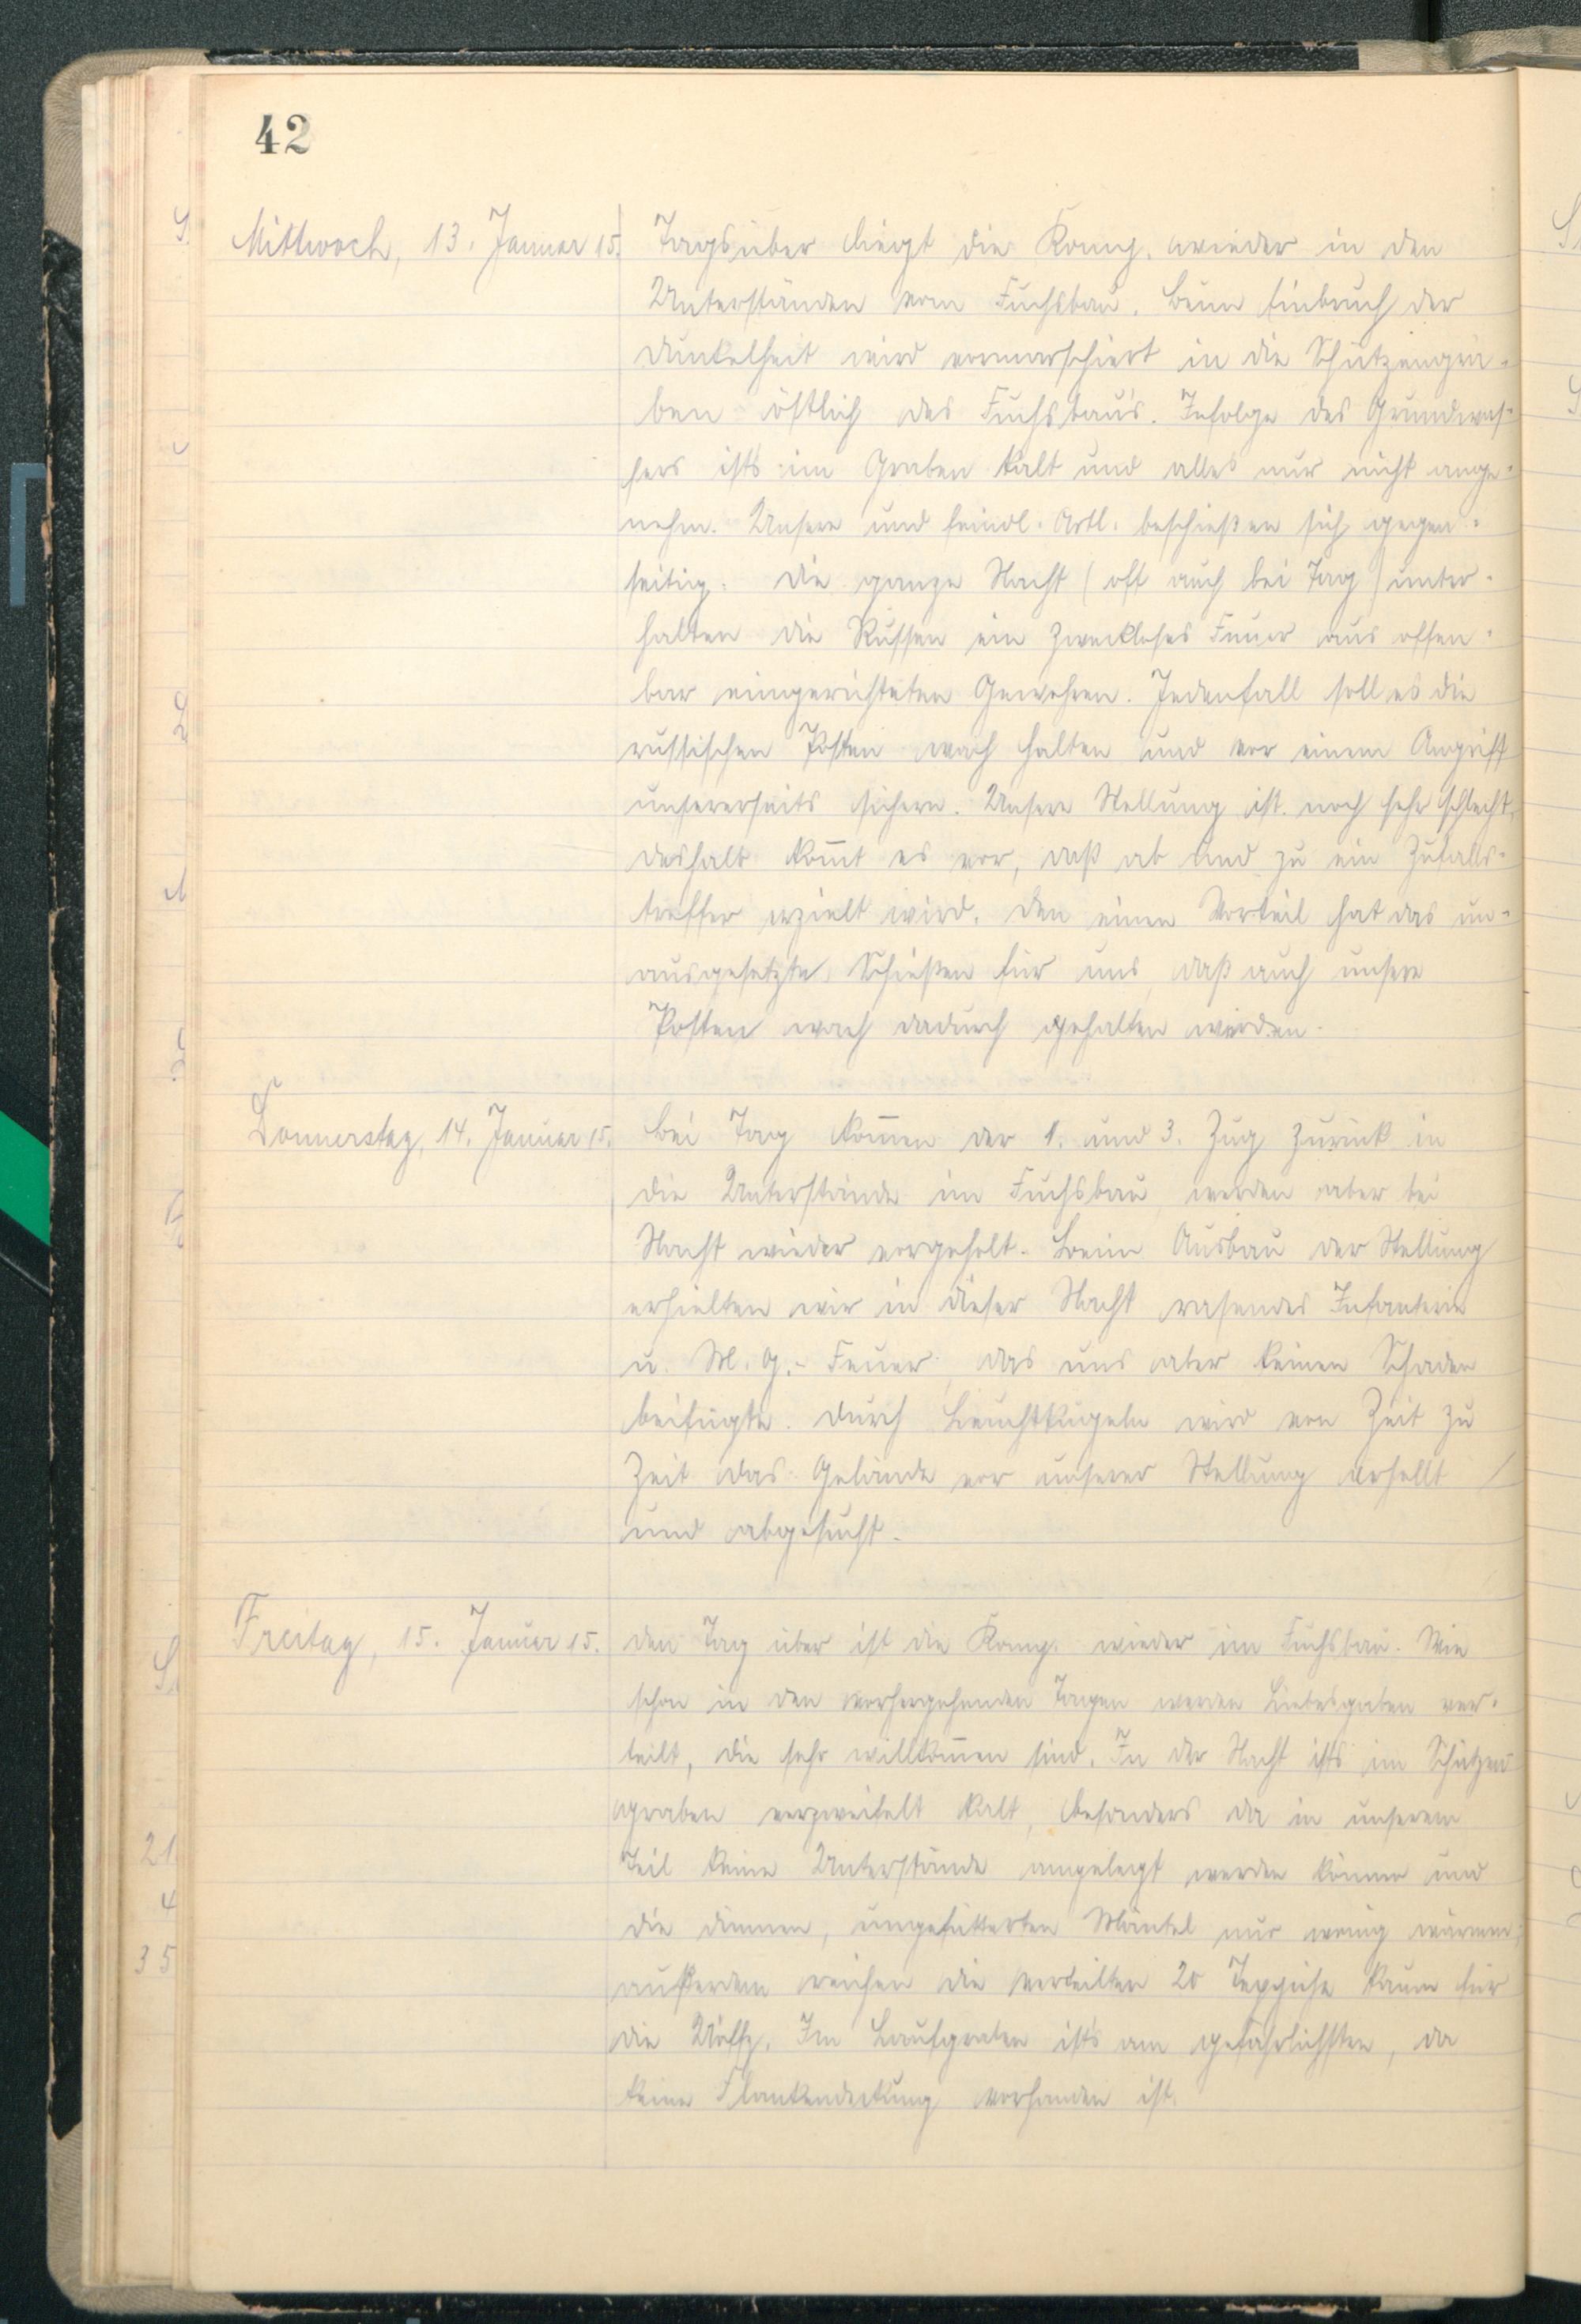 42
Mittwoch, 13. Januar 15.
Tagsüber liegt die Komp. wieder in den
Unterständen vom Fuchsbau. Beim Einbruch der
Dunkelheit wird vormarschiert in die Schützengrä-
ben östlich des Fuchsbau's. Infolge des Grundwas-
sers ists im Graben kalt und alles nur nicht ange-
nehm. Unsere und feindl. Artl. beschießen sich gegen-
seitig. Die ganze Nacht (oft auch bei Tag) unter-
halten die Russen ein zweckloses Feuer aus offen-
bar eingerichteten Gewehren. Jedenfall soll es die
russischen Posten wach halten und vor einem Angriff
unsererseits sichern. Unsere Stellung ist noch sehr schlecht,
deshalb kom̅t es vor, daß ab und zu ein Zufalls-
treffer erzielt wird. Den einen Vorteil hat das un-
ausgesetzte Schießen für uns, daß auch unsere
Posten wach dadurch gehalten werden.
Donnerstag, 14. Januar 15.
Bei Tag kom̅en der 1. und 3. Zug zurück in
die Unterstände im Fuchsbau, werden aber bei
Nacht wieder vorgeholt. Beim Ausbau der Stellung
erhielten wir in dieser Nacht rasendes Infanterie
u. M.G.-Feuer, das uns aber keinen Schaden
beifügte. Durch Leuchtkugeln wird von Zeit zu
Zeit das Gelände vor unserer Stellung erhellt
und abgesucht.
Freitag, 15. Januar 15.
Den Tag über ist die Komp. wieder im Fuchsbau. Wie
schon in den vorhergehenden Tagen werden Liebesgaben ver-
teilt, die sehr willkom̅en sind. In der Nacht ists im Schützen-
graben verzweifelt kalt, besonders da in unserem
Teil keine Unterstände angelegt werden können und
die dünnen, ungefütterten Mäntel nur wenig wärmen,
außerdem reichen die verteilten 20 Teppiche kaum für
die Uoffz. Im Laufgraben ists am gefährlichsten, da
keine Flankendeckung vorhanden ist.
21
4
35